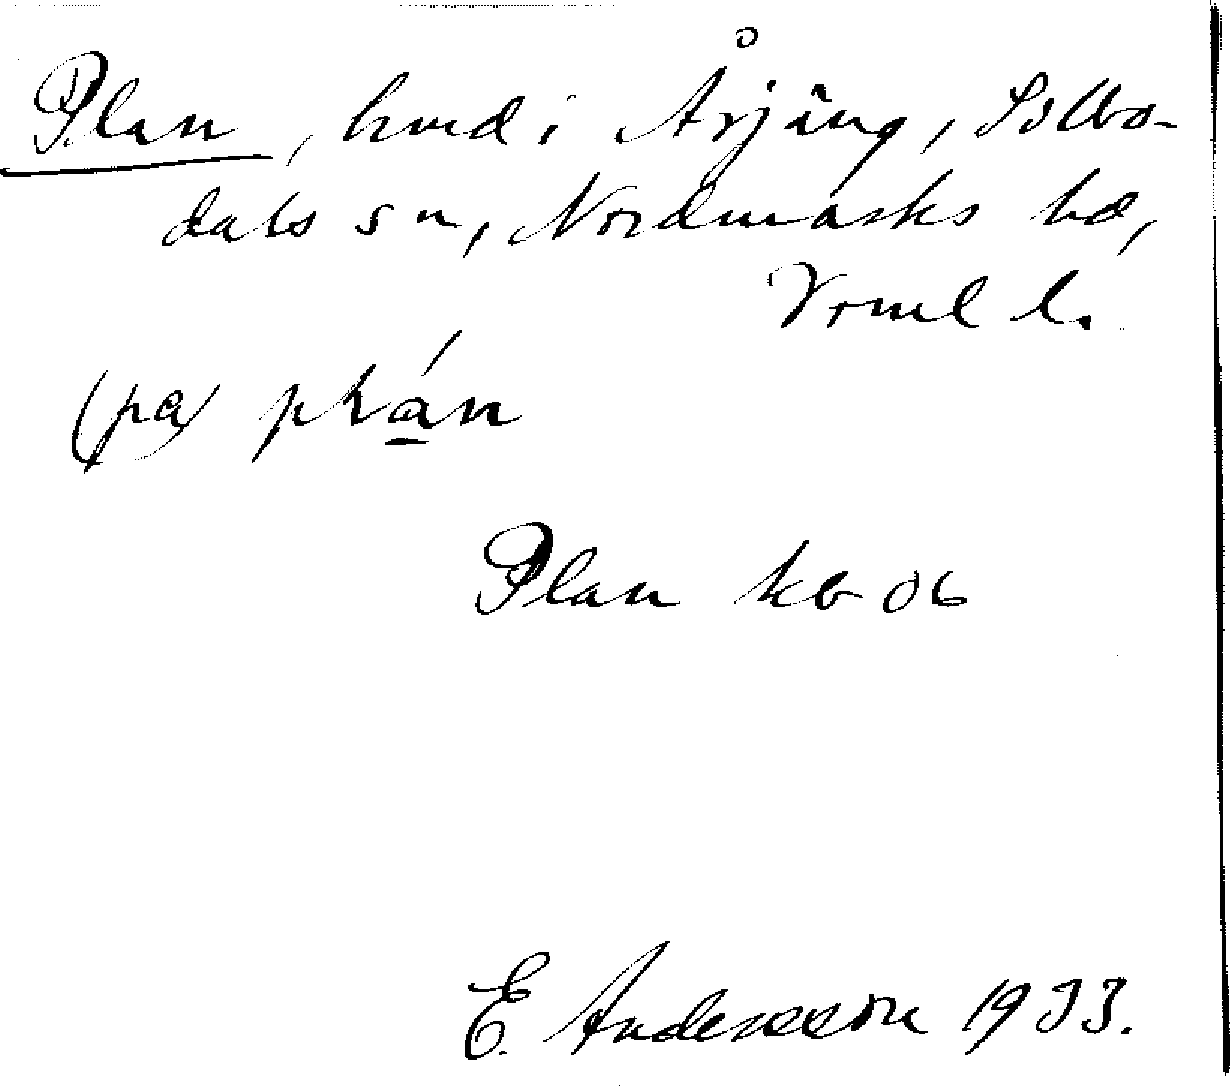 Plan, hmd i Årjäng, Sillbo-
dals sn, Nordmarks hd,
Vrml l.
(pa) plán
Plan kb 06
E. Andersson 1933.